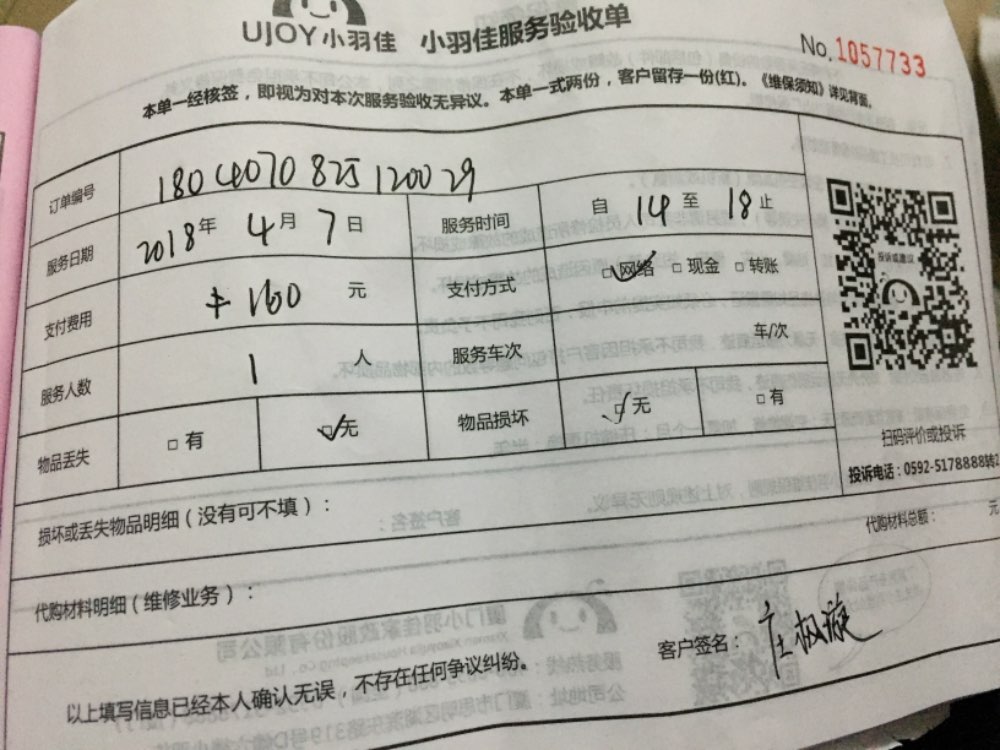 UJOY小羽佳 小羽佳服务验收单
No.1057733
本单一经核签，即视为对本次服务验收无异议。本单一式两份，客户留存一份(红)。《维保须知》详见背面。
订单编号 1804070825120029
服务日期 2018年 4月 7日 服务时间 自 14 至 18 止
支付费用 ¥160 元 支付方式 ☑网络 □现金 □转账
服务人数 1 人 服务车次 车/次
物品丢失 □有 ☑无 物品损坏 ☑无 □有
投诉或建议
扫码评价或投诉
投诉电话：0592-5178888转2
损坏或丢失物品明细（没有可不填）：
代购材料明细（维修业务）：
代购材料总额： 元
以上填写信息已经本人确认无误，不存在任何争议纠纷。
客户签名：